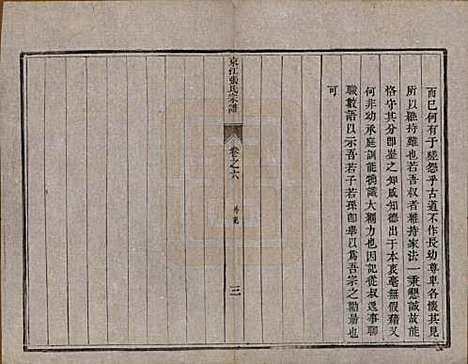 而已何有于嗟怨乎古道不作長幼尊卑各懷其見
所以難持難也若吾叔者維持家法一秉懇誠故能
恪守其分卽鉴之知感知德出于本衷毫無假藉又
何非幼承庭訓能犕識大綱力因記從叔遺事聊
職數語以示吾若子若孫卽舉以爲吾宗之勸勵也
可
東江張氏宗譜
卷之六
三